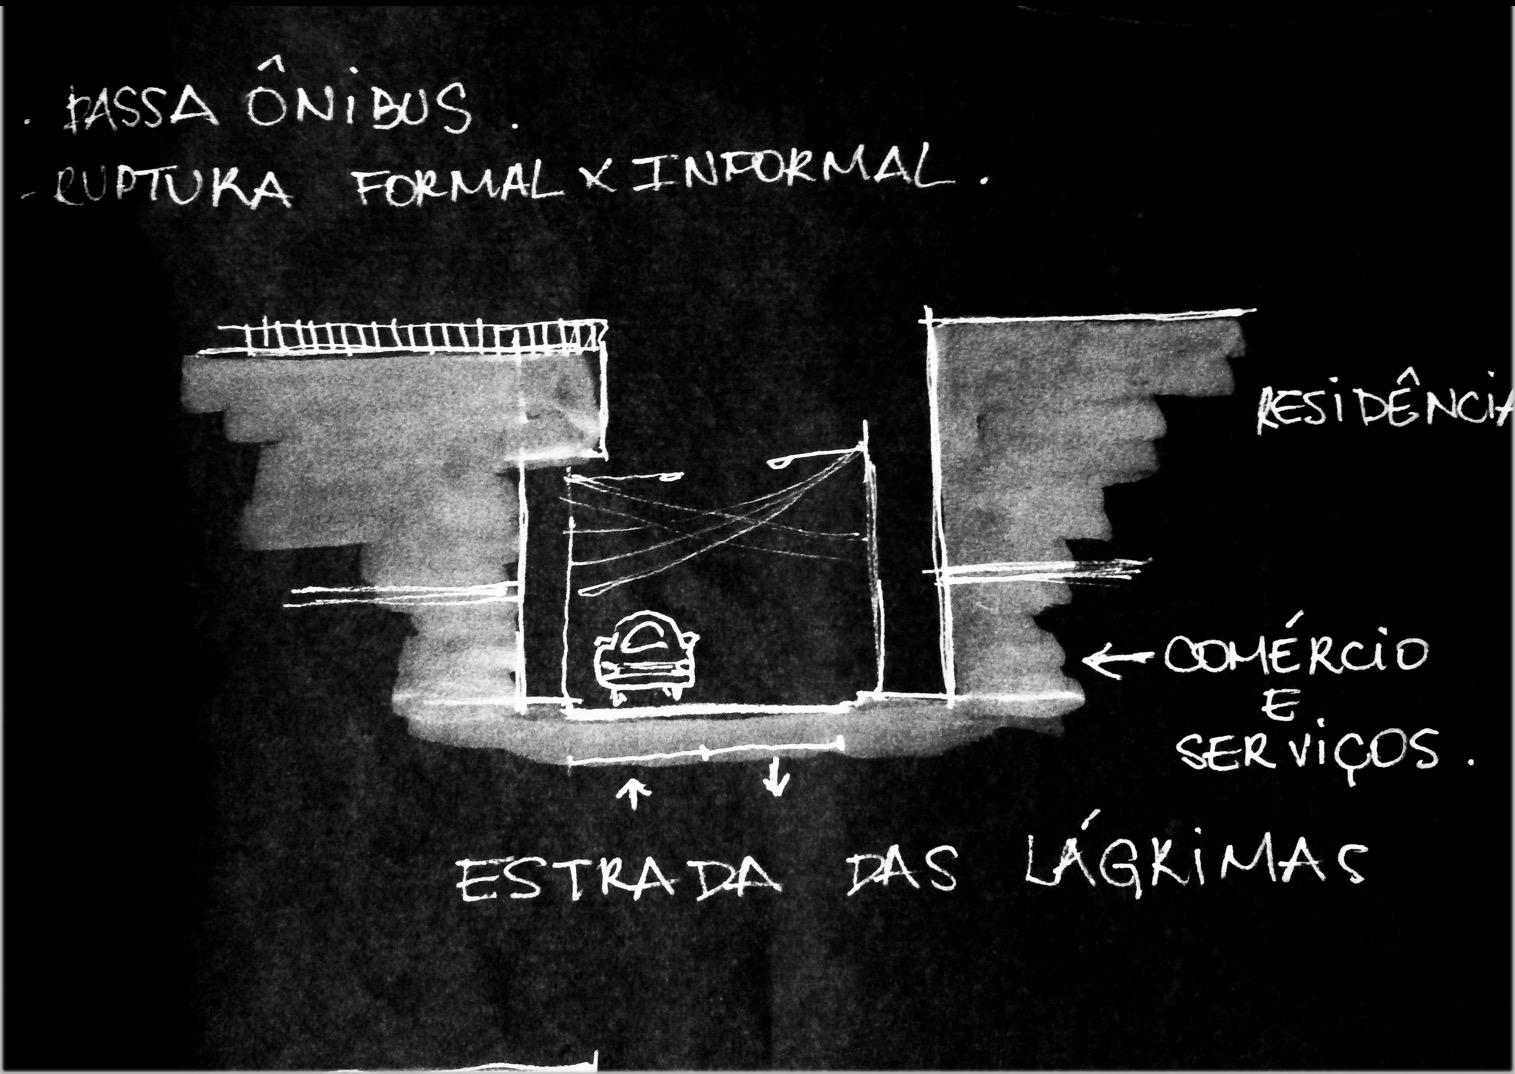 . PASSA ÔNIBUS.
- RUPTURA FORMAL X INFORMAL.
RESIDÊNCIA
← COMÉRCIO
E
SERVIÇOS.
ESTRADA DAS LÁGRIMAS